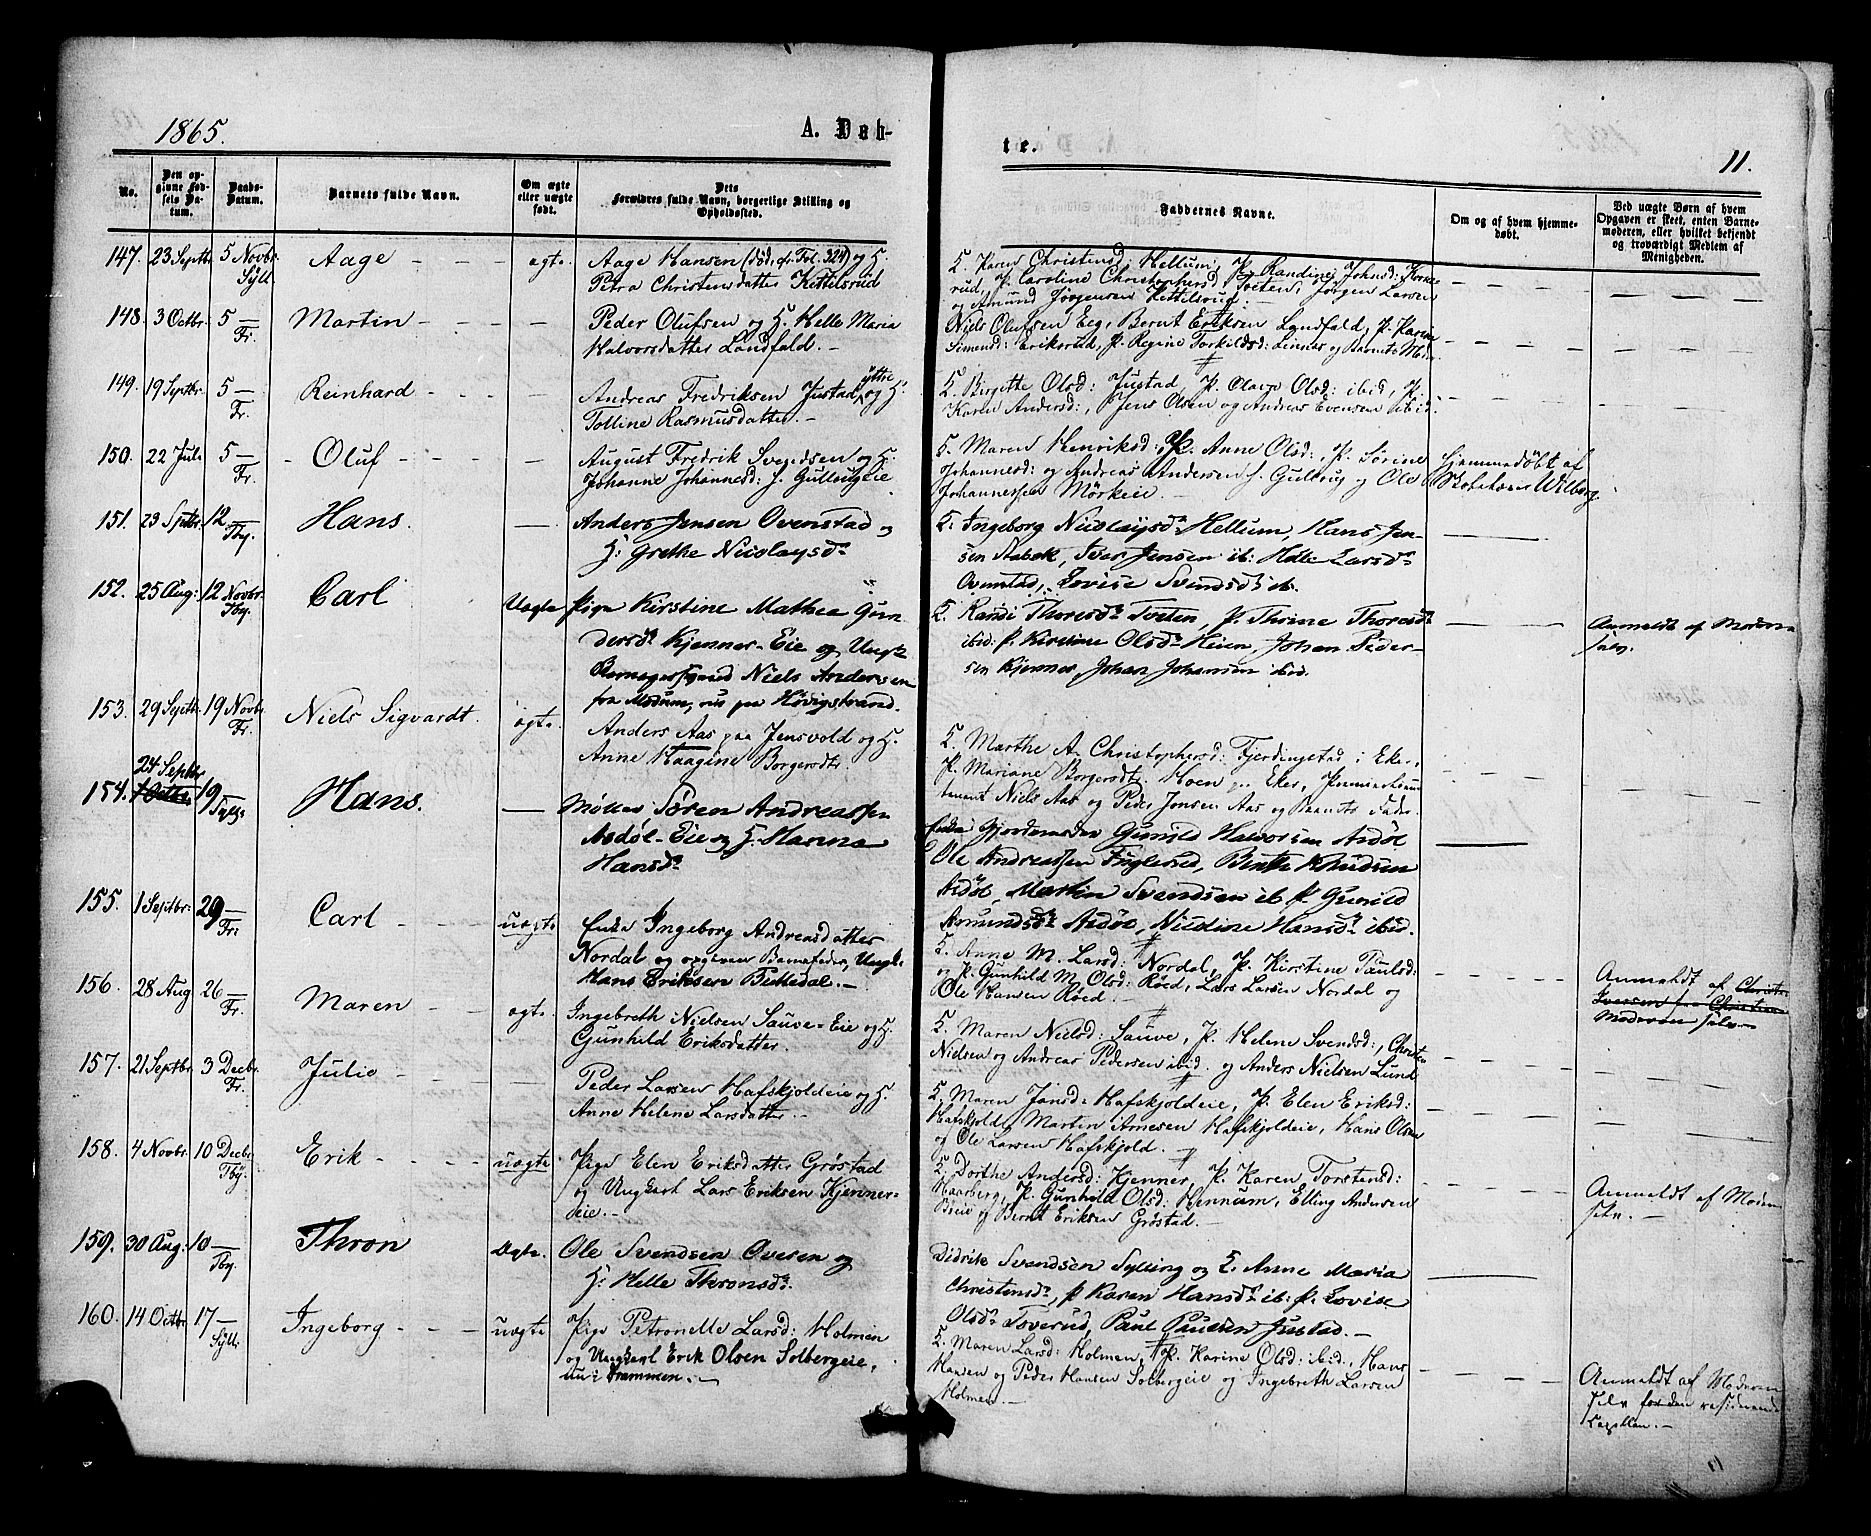 1865.
A. Døb-
te.
11.
No.
Den op-
givne Fød-
sels Da-
tum.
Daabs-
Datum.
Barnets fulde Navn.
Om ægte
eller uægte
født.
Dets
Forældres fulde Navn, borgerlige Stilling og
Opholdssted.
Faddernes Navne.
Om og af hvem hjemme-
døbt.
Ved uægte Børn af hvem
Opgaven er skeet, enten Barne-
moderen, eller hvilket bekjendt
og troværdigt Medlem af
Menigheden.
147. 23 Septbr. 5 Novbr. Aage ægte.
Syll.
Aage Hansen (død, cfr. Fol. 324) og H.
Petra Christensdatter Kittilsrud
K. Karen Christensd: Hellum, P. Randine Johnsd: Korse-
rud, P. Caroline Christophersd: Tveten, Jørgen Larsen
og Amund Jørgensen Kittilsrud. —
148. 3 Octbr. 5 — Martin —
Fr.
Peder Olufsen og H. Helle Maria
Halvorsdatter Landfald. —
Niels Olufsen Eeg, Bernt Eriksen Landfald, P. Karine
Simensd: Eriksrud, P. Regine Torkildsd: Linnes og Barnets Moder
149. 19 Septbr. 5 — Reinhard —
Fr.
Andreas Fredriksen Justad, yttre og H.
Tolline Rasmusdatter. —
K. Birgitte Olsd: Justad, P. Olava Olsd: ibid, P.
Karen Andersd:, Jens Olsen og Andreas Evensen ibid.
150. 22 Juli 5 — Oluf —
Fr.
August Fredrik Svendsen og H.
Johanne Johannesd: f. Gullaugeie
K. Maren Henriksd:, P. Anne Olsd:, P. Sørine
Johannesd: og Andreas Andersen f. Gullaug og Ole
Johannessen Mørkeie. —
Hjemmedøbt af
Skolelærer Wiborg.
151. 23 Septbr. 12 — Hans. —
Tby.
Anders Jensen Ovenstad og
H: Grethe Nicolaysdr
K. Ingeborg Nicolaysdr Hellum, Hans Jen-
sen Aabek, Ivar Jensen ib: Helle Larsdr
Ovenstad, Lovise Svendsdr ib.
152. 25 Aug: 12 Novbr. Carl Uægte
Tby.
Pige Kirstine Mathea Gun-
dersdr Kjenner-Eie og Ungk:
Niels Andersen
fra Modum, nu paa Høvigstrand.
K. Randi Thoresdr Tveten, P. Thrine Thoresdr
ibid: P. Kirstine Olsdr Heien, Johan Peder-
sen Kjenner, Johan Johansen ibid.
Anmeldt af Moderen
selv.
153. 29 Septbr. 19 Novbr. Niels Sigvardt. ægte.
Fr.
Anders Aas paa Jensvold og H.
Anne Haagine Borgersdtr
K. Marthe A. Christophersd: Fjerdingstad i Eker,
P. Mariane Borgersdtr. Hoen paa Eker,
Niels Aas og Peder Jensen Aas og Barnets Fader
154. 24 Septbr 1 Octbr. 19 — Hans. —
Syll.
Møller, Søren Andreassen
Asdøl-Eie og H. Hanna
Hansdr
Gunild Halvorsen Asdøl
Ole Andreassen Fuglerud, Bent Knudsen
Asdøl, Martin Svendsen ib. P. Gunild
Asmundsdr Asdøl, Nicoline Hansdr ibid.
155. 1 Septbr: 29 — Carl uægte
Fr.
Enke Ingeborg Andreasdatter
Nordal og opgiven Barnefader, Ungk:
Hans Eriksen Buttedal. —
K. Anne M. Larsd: Nordal, P. Kirstine Paulsd:
og P. Gunhild M. Olsd: Røed, Lars Larsen Nordal og
Ole Hansen Røed. —
Anmeldt af Christen
Iversen fra Christiania
Moderen selv.
156. 28 Aug. 26 — Maren ægte.
Fr.
Ingebreth Nielsen Sauve-Eie og H.
Gunhild Eriksdatter.
K. Maren Nielsd: Sauve, P. Helene Svendsd:, Christen
Nielsen og Andreas Pedersen ibid. og Anders Nielsen Lund
157. 21 Septbr. 3 Decbr. Julie —
Fr.
Peder Larsen Hafskjoldeie og H.
Anne Helene Larsdatter. —
K. Maren Jansd: Hafskjoldeie, P. Elen Eriksd:
Hafskjold, Martin Arnesen Hafskjoldeie, Hans Olsen
og Ole Larsen Hafskjold. —
158. 4 Novbr. 10 Decbr. Erik uægte
Tby.
Pige Elen Eriksdatter Grøstad
og Ungkarl Lars Eriksen Kjenner-
eie. —
K. Dorthe Andersd: Kjenner, P. Karen Torstensd:
Haarberg, P. Gunhild Olsd: Hennum, Elling Andersen
Bæie og Bernt Eriksen Grøstad. —
Anmeldt af Moderen
selv. —
159. 30 Aug: 10 — Thron Ægte.
Tby.
Ole Svendsen Overen og
H: Helle Thronsdr.
Didrik Svendsen Sylling og K. Anne Maria
Christensdr, P. Karen Hansdr ib: P. Lovise
Olsdr Toverud, Paul Paulsen Justad. —
160. 14 Octbr 17 — Ingeborg uægte
Syll.
Pige Petronelle Larsd: Holmen
og Ungkarl Erik Olsen Solbergeie,
nu i Drammen. —
K. Maren Larsd: Holmen, P. Karine Olsd: ibid., Hans
Hansen og Peder Hansen Solbergeie og Ingebreth Larsen
Holmen. —
Anmeldt af Moderen
selv for den residerende
Capellan. —